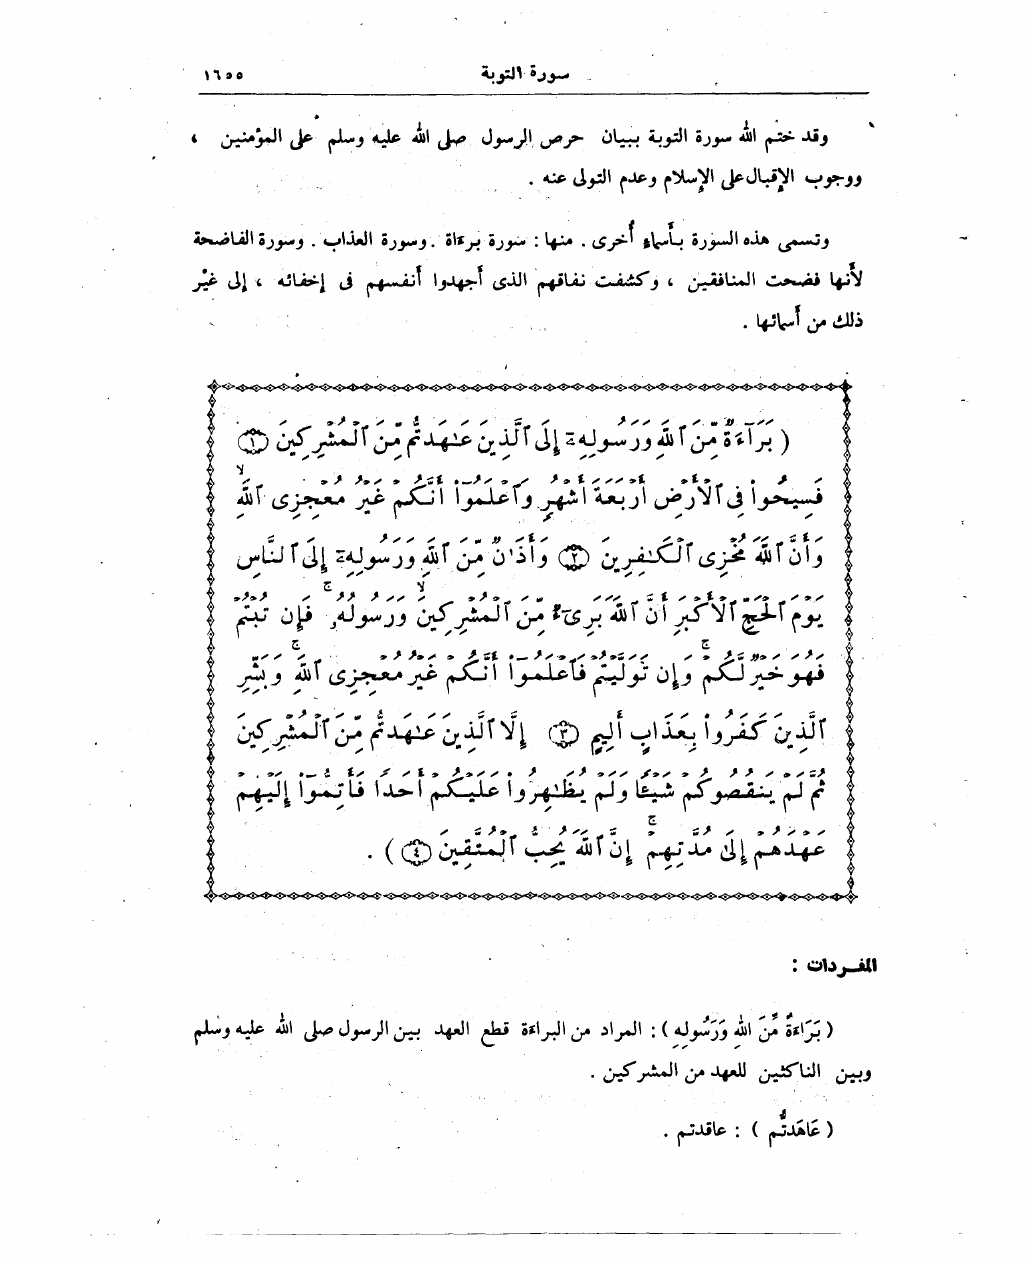 سورة التوبة ١٦٥٥
وقد ختم الله سورة التوبة ببيان حرص الرسول صلى الله عليه وسلم على المؤمنين ،
ووجوب الإقبال على الإسلام وعدم التولى عنه .
وتسمى هذه السورة بأسماء أخرى . منها : سورة براءة . وسورة العذاب . وسورة الفاضحة
لأنها فضحت المنافقين ، وكشفت نفاقهم الذى أجهدوا أنفسهم فى إخفائه ، إلى غير
ذلك من أسمائها .
( بَرَآءَةٌ مِّنَ ٱللَّهِ وَرَسُولِهِۦٓ إِلَى ٱلَّذِينَ عَٰهَدتُّم مِّنَ ٱلْمُشْرِكِينَ ﴿١﴾
فَسِيحُوا۟ فِى ٱلْأَرْضِ أَرْبَعَةَ أَشْهُرٍ وَٱعْلَمُوٓا۟ أَنَّكُمْ غَيْرُ مُعْجِزِى ٱللَّهِ ۙ
وَأَنَّ ٱللَّهَ مُخْزِى ٱلْكَٰفِرِينَ ﴿٢﴾ وَأَذَٰنٌ مِّنَ ٱللَّهِ وَرَسُولِهِۦٓ إِلَى ٱلنَّاسِ
يَوْمَ ٱلْحَجِّ ٱلْأَكْبَرِ أَنَّ ٱللَّهَ بَرِىٓءٌ مِّنَ ٱلْمُشْرِكِينَ ۙ وَرَسُولُهُۥ ۚ فَإِن تُبْتُمْ
فَهُوَ خَيْرٌ لَّكُمْ ۖ وَإِن تَوَلَّيْتُمْ فَٱعْلَمُوٓا۟ أَنَّكُمْ غَيْرُ مُعْجِزِى ٱللَّهِ ۗ وَبَشِّرِ
ٱلَّذِينَ كَفَرُوا۟ بِعَذَابٍ أَلِيمٍ ﴿٣﴾ إِلَّا ٱلَّذِينَ عَٰهَدتُّم مِّنَ ٱلْمُشْرِكِينَ
ثُمَّ لَمْ يَنقُصُوكُمْ شَيْـًٔا وَلَمْ يُظَٰهِرُوا۟ عَلَيْكُمْ أَحَدًا فَأَتِمُّوٓا۟ إِلَيْهِمْ
عَهْدَهُمْ إِلَىٰ مُدَّتِهِمْ ۚ إِنَّ ٱللَّهَ يُحِبُّ ٱلْمُتَّقِينَ ﴿٤﴾ ) .
المفردات :
( بَرَاءَةٌ مِّنَ اللهِ وَرَسُولِهِ ) : المراد من البراءة قطع العهد بين الرسول صلى الله عليه وسلم
وبين الناكثين للعهد من المشركين .
( عَاهَدتُّم ) : عاقدتم .